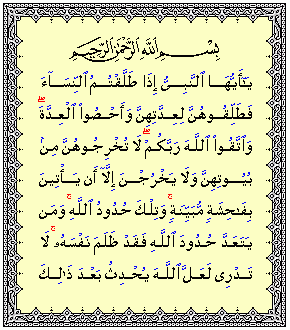 بِسْمِ اللَّهِ الرَّحْمَٰنِ الرَّحِيمِ
يَـٰٓأَيُّهَا ٱلنَّبِىُّ إِذَا طَلَّقْتُمُ ٱلنِّسَآءَ
فَطَلِّقُوهُنَّ لِعِدَّتِهِنَّ وَأَحْصُوا۟ ٱلْعِدَّةَ ۖ
وَٱتَّقُوا۟ ٱللَّهَ رَبَّكُمْ ۖ لَا تُخْرِجُوهُنَّ مِنۢ
بُيُوتِهِنَّ وَلَا يَخْرُجْنَ إِلَّآ أَن يَأْتِينَ
بِفَـٰحِشَةٍ مُّبَيِّنَةٍ ۚ وَتِلْكَ حُدُودُ ٱللَّهِ ۚ وَمَن
يَتَعَدَّ حُدُودَ ٱللَّهِ فَقَدْ ظَلَمَ نَفْسَهُۥ ۚ لَا
تَدْرِى لَعَلَّ ٱللَّهَ يُحْدِثُ بَعْدَ ذَٰلِكَ